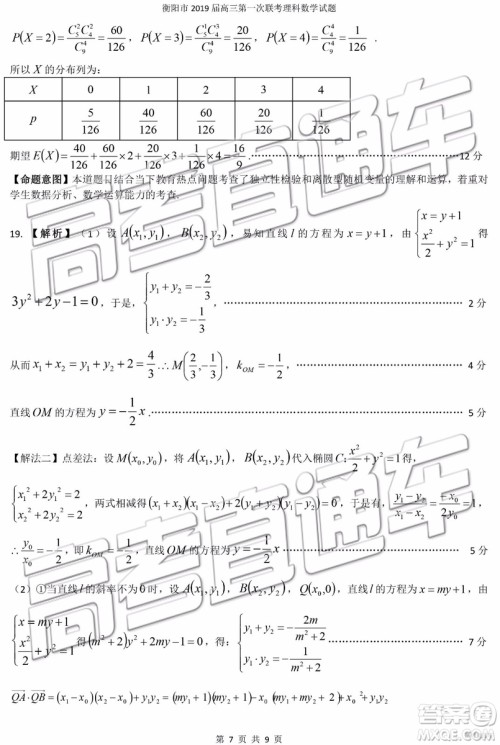 衡阳市 2019 届高三第一次联考理科数学试题
P(X=2)=C₅²C₄²/C₉⁴=60/126, P(X=3)=C₅¹C₄³/C₉⁴=20/126, P(X=4)=C₄⁴/C₉⁴=1/126.
所以 X 的分布列为:
X 0 1 2 3 4
p 5/126 40/126 60/126 20/126 1/126
期望 E(X)=40/126+60/126×2+20/126×3+1/126×4=16/9. ……12 分
【命题意图】本道题目结合当下教育热点问题考查了独立性检验和离散型随机变量的理解和运算，着重对
学生数据分析、数学运算能力的考查.
19. 【解析】（1）设 A(x₁,y₁), B(x₂,y₂), 易知直线 l 的方程为 x=y+1, 由 {x=y+1, x²/2+y²=1 得
3y²+2y-1=0, 于是, {y₁+y₂=-2/3, y₁·y₂=-1/3, ……2 分
从而 x₁+x₂=y₁+y₂+2=4/3 ∴M(2/3,-1/3), k_OM=-1/2 ……4 分
直线 OM 的方程为 y=-1/2 x. ……5 分
【解法二】点差法: 设 M(x₀,y₀), 将 A(x₁,y₁), B(x₂,y₂) 代入椭圆 C: x²/2+y²=1 得,
{x₁²+2y₁²=2, x₂²+2y₂²=2, 两式相减得 (x₁+x₂)(x₁-x₂)+2(y₁+y₂)(y₁-y₂)=0, 于是有, (y₁-y₂)/(x₁-x₂)=-x₀/2y₀=1
∴ y₀/x₀=-1/2, 即 k_OM=-1/2, 直线 OM 的方程为 y=-1/2 x ……5 分
（2）①当直线 l 的斜率不为 0 时, 设 A(x₁,y₁), B(x₂,y₂), Q(x₀,0), 直线 l 的方程为 x=my+1, 由
{x=my+1, x²/2+y²=1 得 (m²+2)y²+2my-1=0, 得: {y₁+y₂=-2m/(m²+2), y₁·y₂=-1/(m²+2) ……7 分
QA·QB=(x₁-x₀)(x₂-x₀)+y₁y₂=(my₁+1)(my₂+1)-x₀(my₁+1+my₂+1)+x₀²+y₁y₂
第 7 页 共 9 页
高考直通车
高考直通车
高考直通车